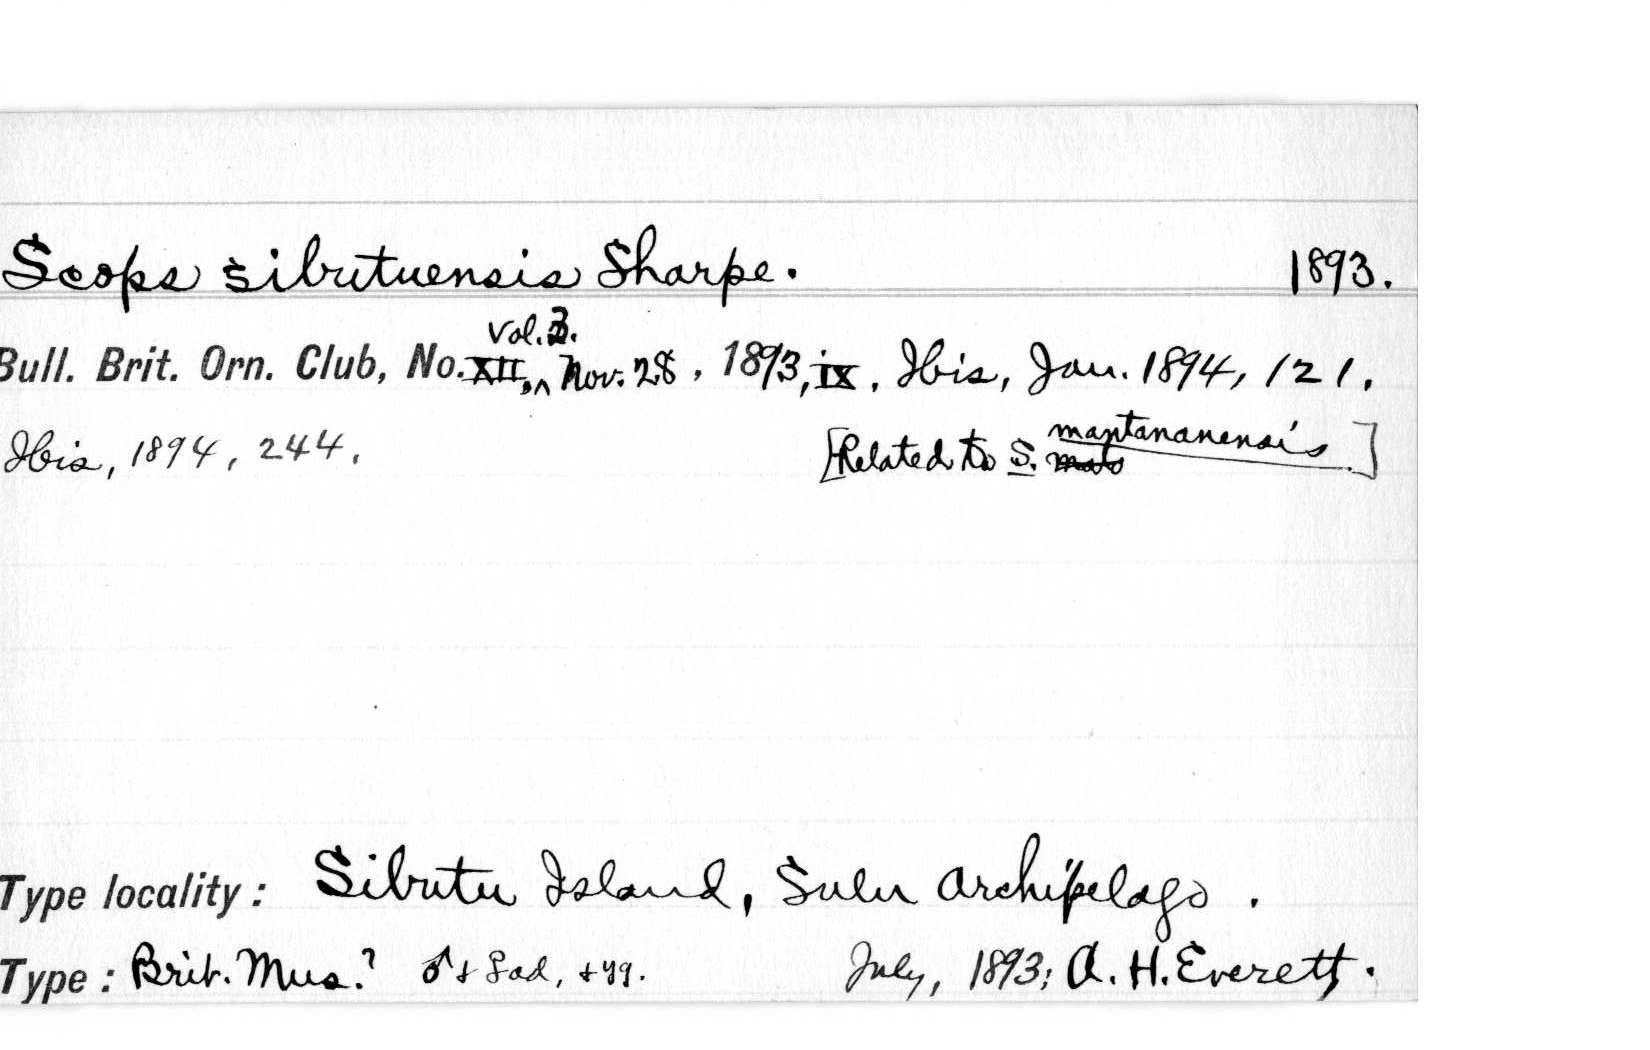 Scops sibutuensis Sharpe. 1893.
Bull. Brit. Orn. Club, No. XII, Vol. 3. Nov. 28, 1893, ix. Ibis, Jan. 1894, 121.
Ibis, 1894, 244. [Related to S. mantananensis]
Type locality: Sibutu Island, Sulu Archipelago.
Type: Brit. Mus.? ♂ + ♀ ad, + yg. July, 1893; A. H. Everett.